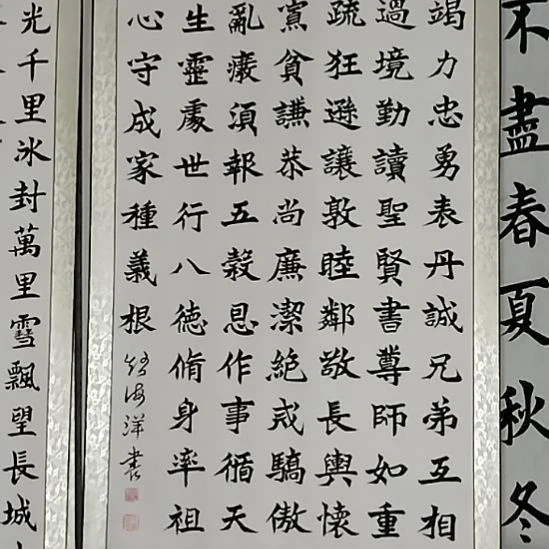 盡春夏秋冬
竭力忠勇表丹誠兄弟互相
境勤讀聖賢書尊師如重
疏狂遜讓敦睦鄰敬長輿懷
貧謙恭尚廉潔絕戒驕傲
亂湏報五穀恩作事循天
生靈處世行八德脩身率祖
心守成家種義根
海洋書
光千里冰封萬里雪飄望長城